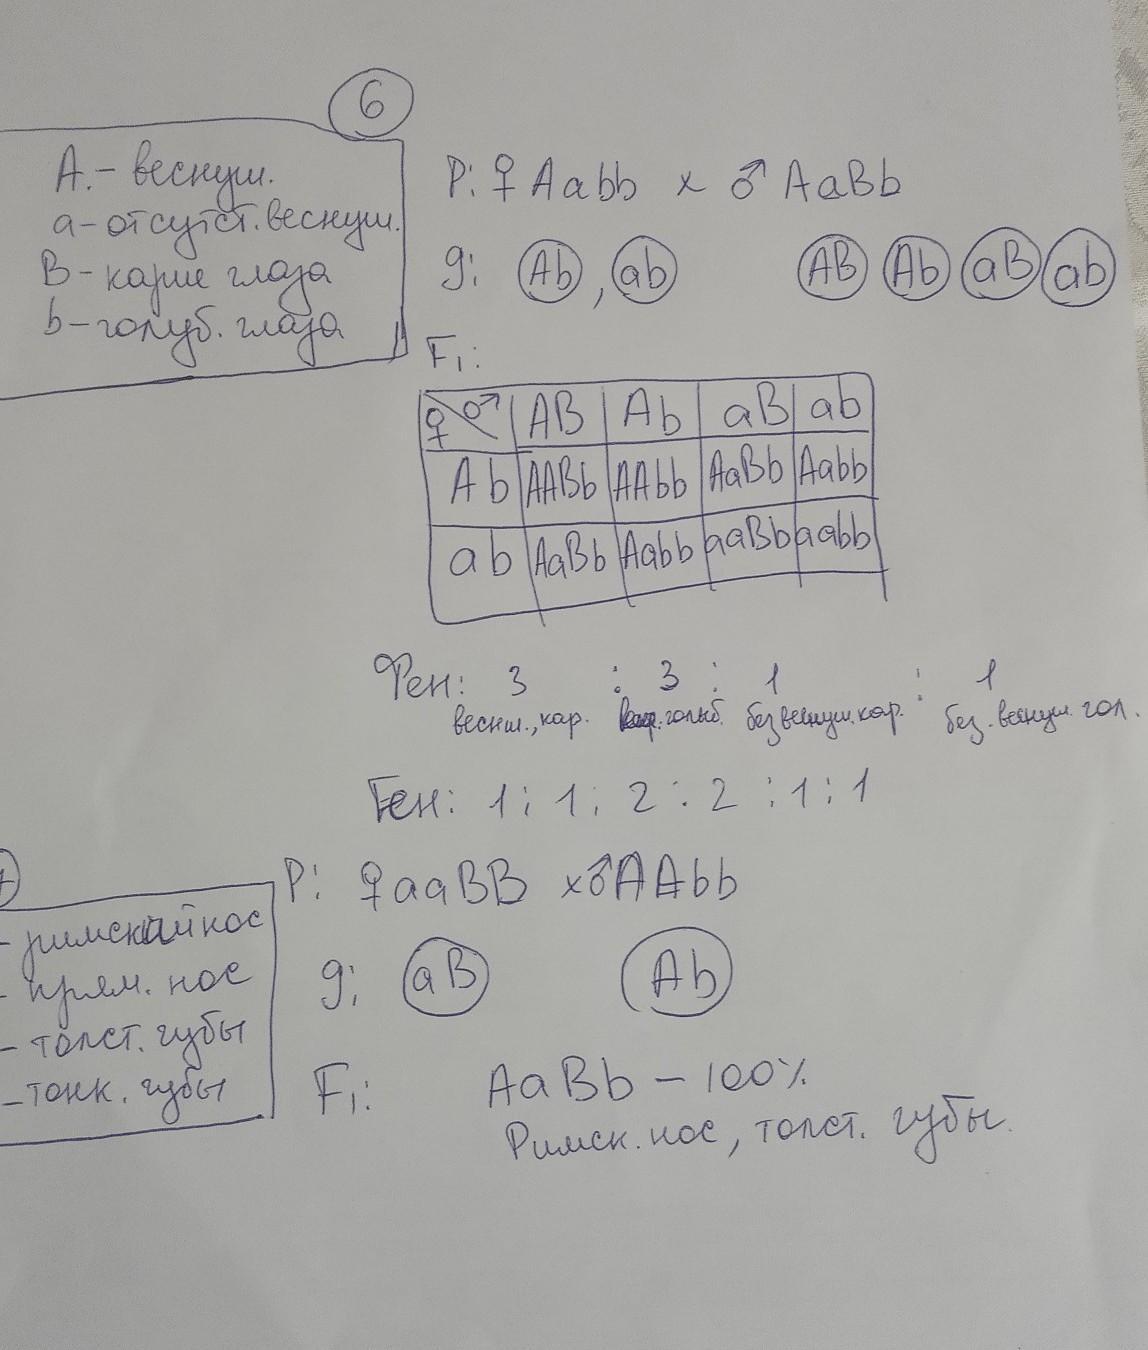 6
А.- веснуш.
а-отсутст.веснуш.
В-карие глаза
b-голуб. глаза
P: ♀ Aabb x ♂ AaBb
g: Ab, ab AB Ab aB ab
F₁:
♀ ♂ AB Ab aB ab
Ab AABb AAbb AaBb Aabb
ab AaBb Aabb aaBb aabb
Фен: 3 : 3 : 1 : 1
веснш., кар. голуб. без веснуш. кар. без. веснуш. гол.
Ген: 1 : 1 : 2 : 2 : 1 : 1
P: ♀ aaBB x ♂ AAbb
- римский нос
g: aB Ab
- прям. нос
- толст. губы
- тонк. губы
F₁: AaBb - 100%
Римск. нос, толст. губы.